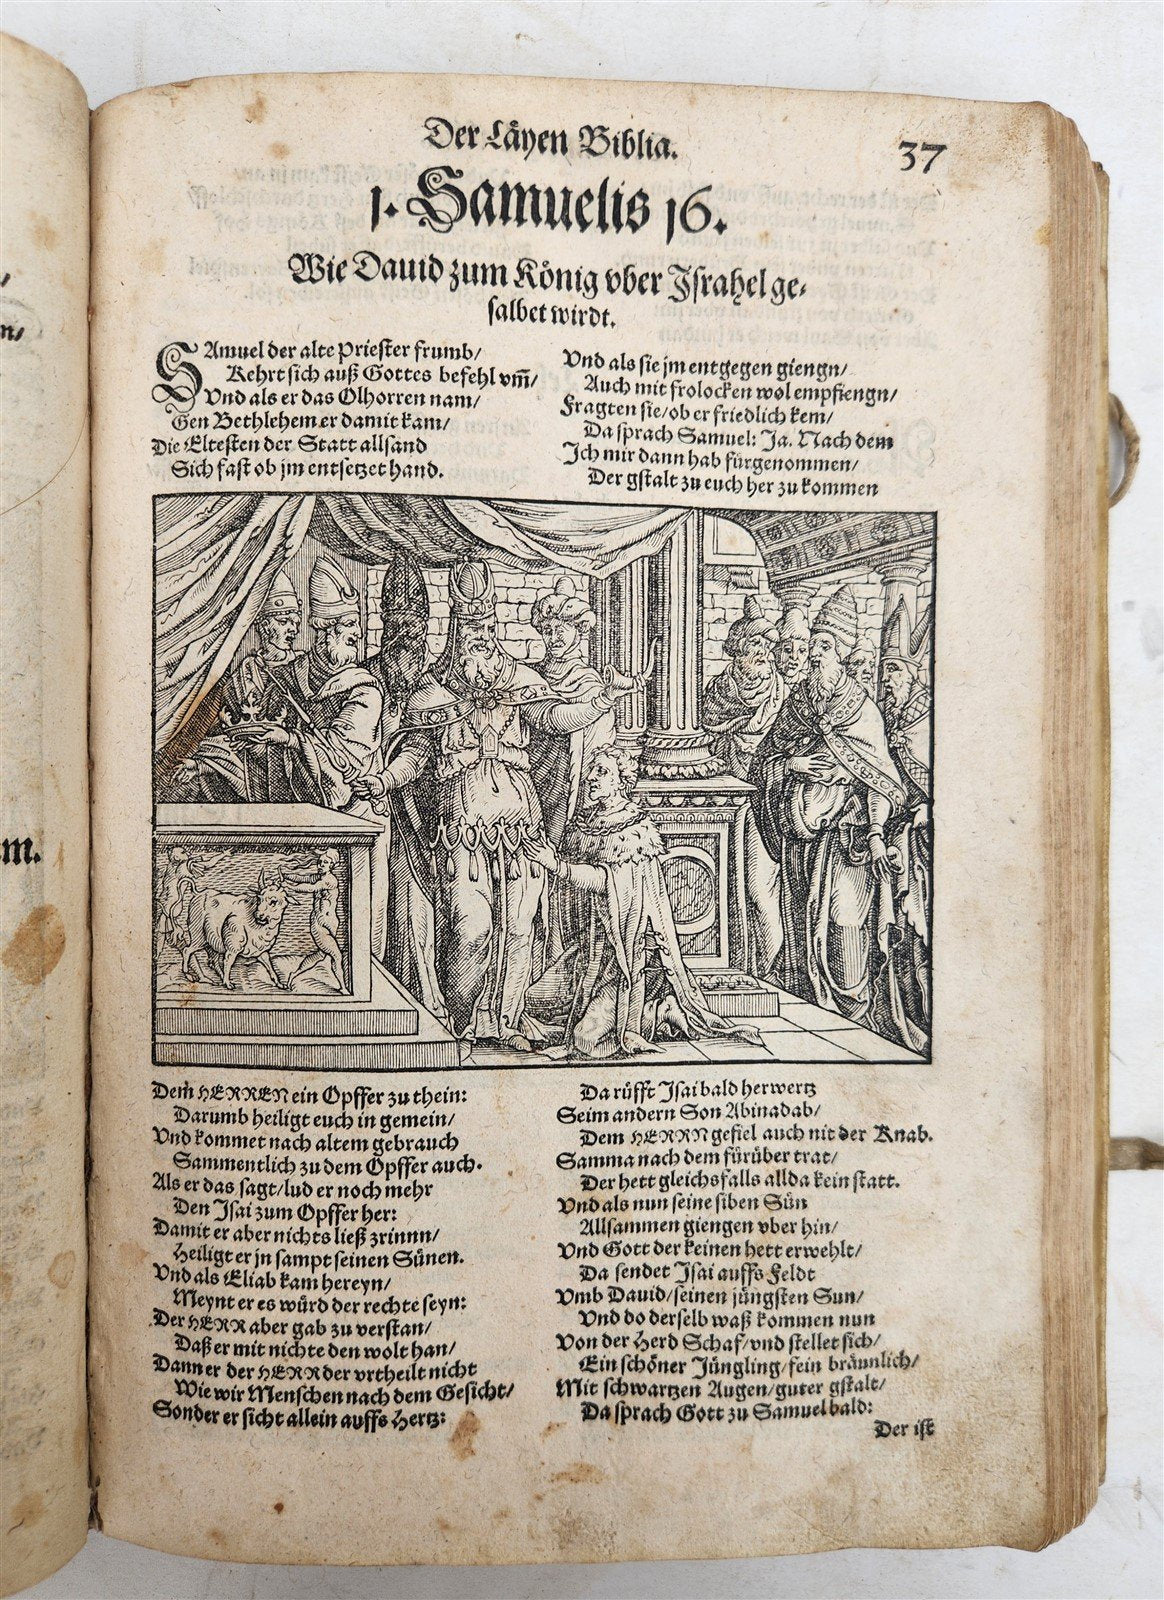 Der Läyen Biblia.
37
1. Samuelis 16.
Wie Dauid zum König vber Israhel ge-
salbet wirdt.
SAmuel der alte Priester frumb/
Kehrt sich auß Gottes befehl vm̄/
Vnd als er das Olhorren nam/
Gen Bethlehem er damit kam/
Die Eltesten der Statt allsand
Sich fast ob jm entsetzet hand.
Vnd als sie jm entgegen giengn/
Auch mit frolocken wol empfiengn/
Fragten sie/ ob er friedlich kem/
Da sprach Samuel: Ja. Nach dem
Ich mir dann hab fürgenommen/
Der gstalt zu euch her zu kommen
Dem HERREN ein Opffer zu thein:
Darumb heiligt euch in gemein/
Vnd kommet nach altem gebrauch
Sammentlich zu dem Opffer auch.
Als er das sagt/ lud er noch mehr
Den Isai zum Opffer her:
Damit er aber nichts ließ zrinnn/
Heiligt er jn sampt seinen Sünen.
Vnd als Eliab kam hereyn/
Meynt er es würd der rechte seyn:
Der HERR aber gab zu verstan/
Daß er mit nichte den wolt han/
Dann er der HERR der vrtheilt nicht
Wie wir Menschen nach dem Gesicht/
Sonder er sicht allein auffs Hertz:
Da rüfft Isai bald herwertz
Seim andern Son Abinadab/
Dem HERRN gefiel auch nit der Knab.
Samma nach dem fürüber trat/
Der hett gleichsfalls allda kein statt.
Vnd als nun seine siben Sün
Allsammen giengen vber hin/
Vnd Gott der keinen hett erwehlt/
Da sendet Isai auffs Feldt
Vmb Dauid/ seinen jüngsten Sun/
Vnd do derselb waß kommen nun
Von der Herd Schaf/ vnd stellet sich/
Ein schöner Jüngling/ fein bräunlich/
Mit schwartzen Augen/ guter gstalt/
Da sprach Gott zu Samuel bald:
Der ist
m.